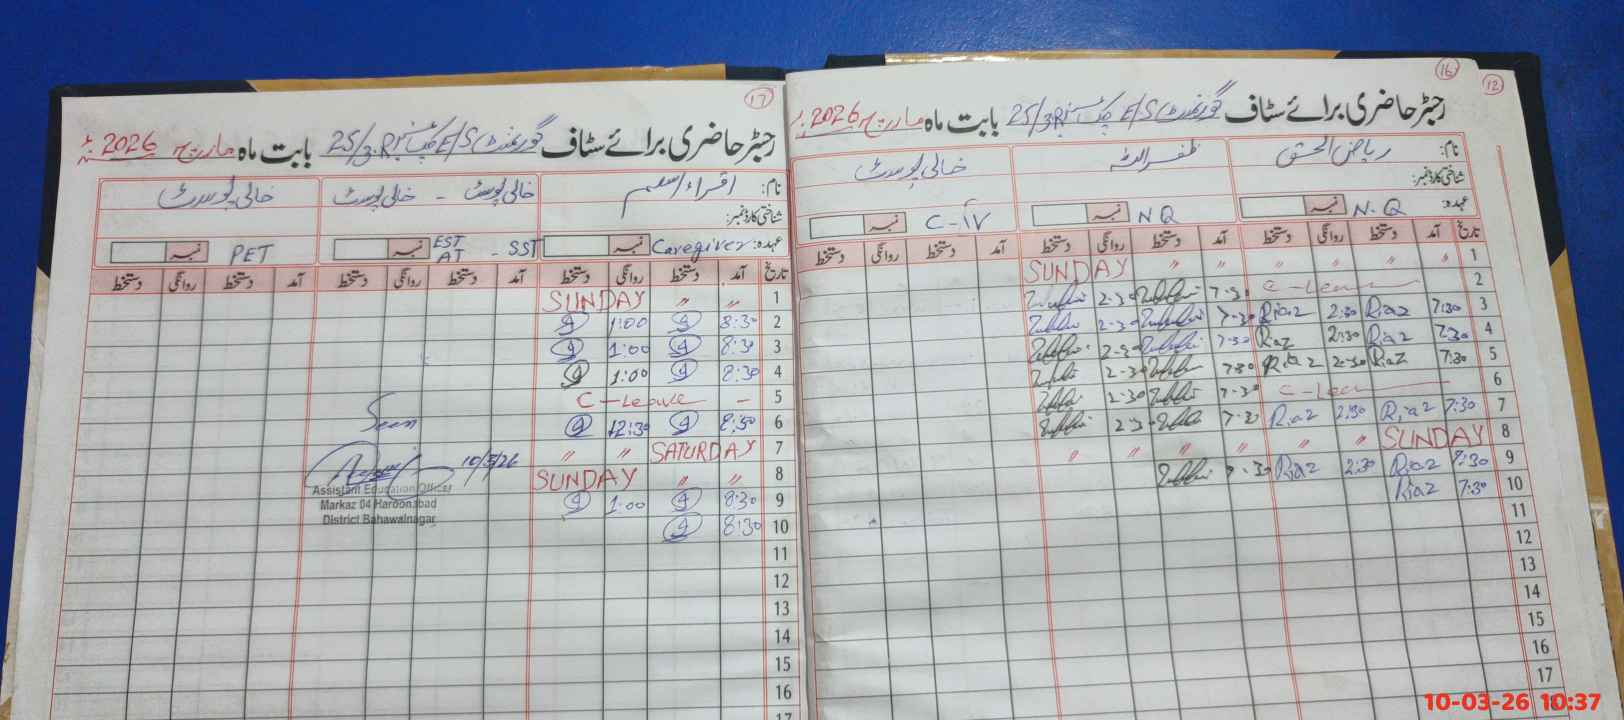 16
12
رجسٹر حاضری برائے سٹاف گورنمنٹ E/S چک نمبر 25/3.R بابت ماہ مارچ 2026ء
نام: ریاض الحق ظفر اللہ خالی پوسٹ
شناختی کارڈ نمبر:
عہدہ: N.Q نمبر NQ نمبر C-IV نمبر
تاریخ آمد دستخط روانگی دستخط آمد دستخط روانگی دستخط آمد دستخط روانگی دستخط
1 " " " " " " SUNDAY
2 C-Leave 7-30 2-30
3 7:30 Riaz 2:30 Riaz 7-30 2-30
4 7:30 Riaz 2:30 Riaz 7-30 2-30
5 7:30 Riaz 2-30 Riaz 7-30 2-30
6 C-Leave 7-30 2-30
7 7:30 Riaz 2:30 Riaz 7-30 2-30
8 SUNDAY " " " " " "
9 7:30 Riaz 2:30 Riaz 7-30
10 7:30 Riaz
11
12
13
14
15
16
17
17
رجسٹر حاضری برائے سٹاف گورنمنٹ E/S چک نمبر 25/3.R بابت ماہ مارچ 2026ء
نام: اقراء اسلم خالی پوسٹ - خالی پوسٹ خالی پوسٹ
شناختی کارڈ نمبر:
عہدہ: Caregiver نمبر EST AT - SST نمبر PET نمبر
تاریخ آمد دستخط روانگی دستخط آمد دستخط روانگی دستخط آمد دستخط روانگی دستخط
1 SUNDAY " "
2 8:30 1:00
3 8:30 1:00
4 8:30 1:00
5 C-Leave -
6 8:30 12:30
7 SATURDAY " "
8 SUNDAY " "
9 8:30 1:00
10 8:30
11
12
13
14
15
16
17
Seen
10/3/26
Assistant Education Officer
Markaz 04 Haroonabad
District Bahawalnagar
10-03-26 10:37